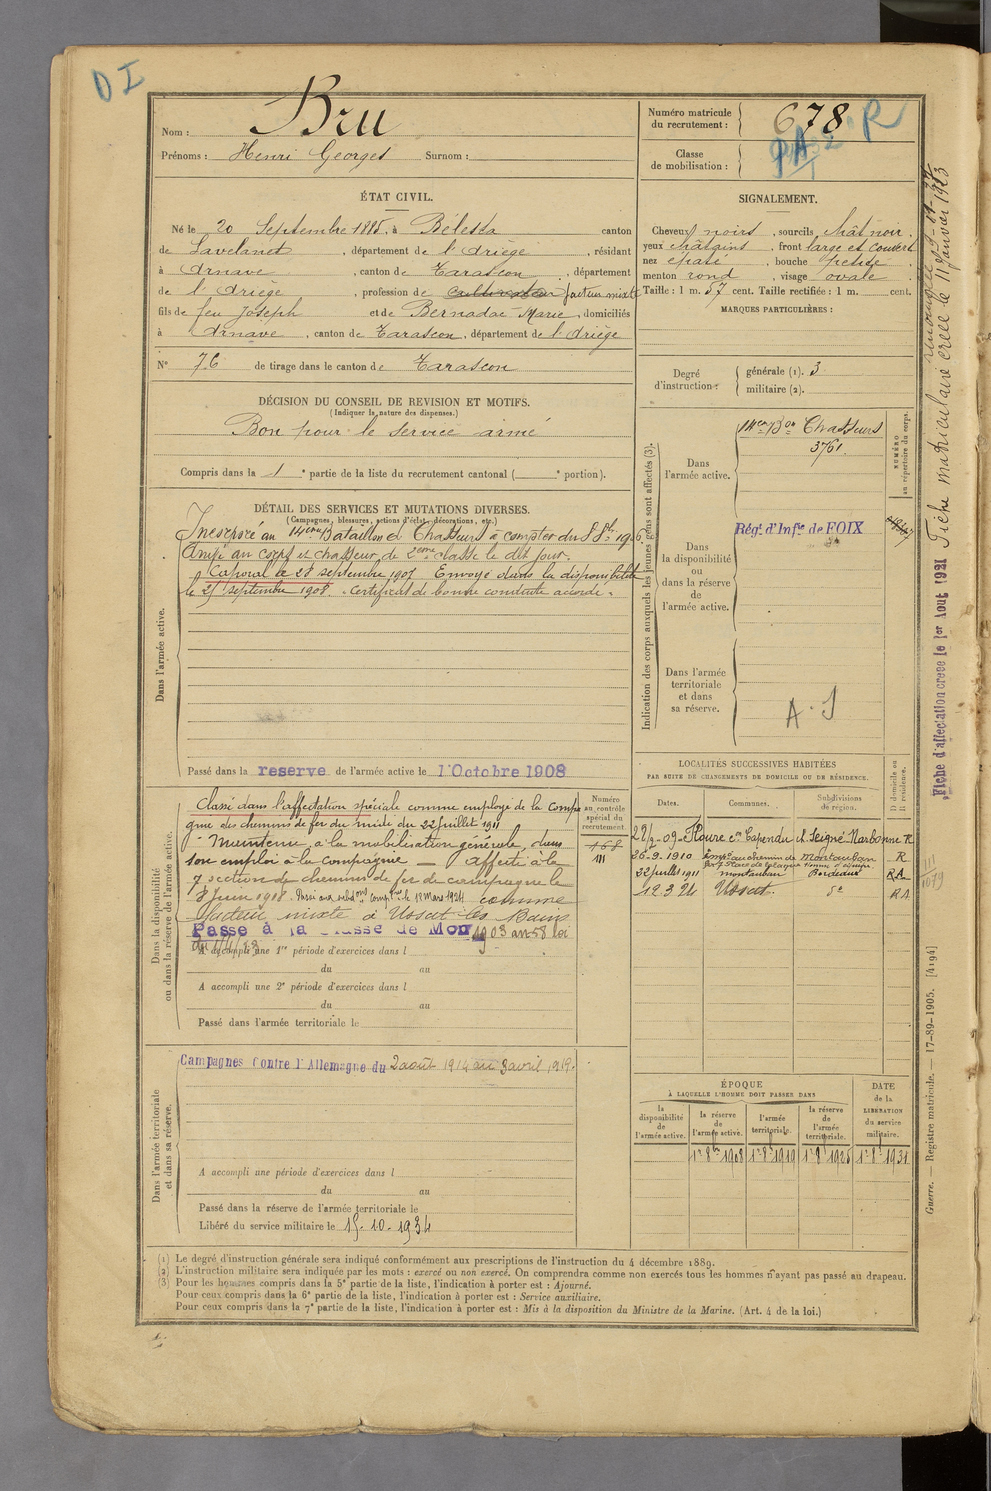 D I
Nom : Bru
Prénoms : Henri Georges Surnom :
Numéro matricule
du recrutement :
678 R
Classe
de mobilisation :
ÉTAT CIVIL.
Né le 20 Septembre 1885, à Bélesta canton
de Lavelanet, département de l'Ariège, résidant
à Arnave, canton de Tarascon, département
de l'Ariège, profession de cultivateur facteur mixte
fils de feu Joseph et de Bernadac Marie, domiciliés
à Arnave, canton de Tarascon, département de l'Ariège
N° 76 de tirage dans le canton de Tarascon
DÉCISION DU CONSEIL DE REVISION ET MOTIFS.
(Indiquer la nature des dispenses.)
Bon pour le service armé
Compris dans la 1 e partie de la liste du recrutement cantonal ( e portion).
SIGNALEMENT.
Cheveux noirs, sourcils chât noir.
yeux châtains, front large et couvert
nez épaté, bouche petite
menton rond, visage ovale
Taille : 1 m. 57 cent. Taille rectifiée : 1 m. cent.
MARQUES PARTICULIÈRES :
Degré
d'instruction :
générale (1). 3
militaire (2).
DÉTAIL DES SERVICES ET MUTATIONS DIVERSES.
(Campagnes, blessures, actions d'éclat, décorations, etc.)
Dans l'armée active.
Incorporé au 14eme Bataillon de Chasseurs à compter du 8 8bre 1906.
Arrivé au corps et chasseur de 2eme classe le dit jour.
Caporal le 28 septembre 1907 Envoyé dans la disponibilité
le 25 septembre 1908. certificat de bonne conduite accordé.
Passé dans la reserve de l'armée active le 1 Octobre 1908
Indication des corps auxquels les jeunes gens sont affectés (3).
NUMÉRO
au répertoire du corps.
Dans
l'armée active.
14em Bon Chasseurs
3761.
Dans
la disponibilité
ou
dans la réserve
de
l'armée active.
Régt d'Infie de FOIX
Dans l'armée
territoriale
et dans
sa réserve.
A. S
Dans la disponibilité
ou dans la réserve de l'armée active.
Numéro
au contrôle
spécial du
recrutement
168
111
Classé dans l'affectation spéciale comme employé de la Compa
gnie des chemins de fer du midi du 22 juillet 1911
Maintenu, à la mobilisation générale, dans
son emploi à la compagnie — Affecté à la
7 section de chemins de fer de campagne le
8 Juin 1918. Passé aux subdons complres le 12 Mars 1921 comme
facteur mixte à Ussat les Bains
Passé à la classe de Mon 1903 art 58 loi
A accompli une 1re période d'exercices dans l
du au
A accompli une 2e période d'exercices dans l
du au
Passé dans l'armée territoriale le
LOCALITÉS SUCCESSIVES HABITÉES
PAR SUITE DE CHANGEMENTS DE DOMICILE OU DE RÉSIDENCE.
Dates. Communes. Subdivisions
de région.
D domicile ou
R résidence.
Floure con Capendu Narbonne R
26-9-1910 Empé au chemin de Montauban R
22 juillet 1911 montauban Bordeaux RA
12 3 21 Ussat RA
111
1079
Dans l'armée territoriale
et dans sa réserve.
Campagnes Contre l'Allemagne du 2 août 1914 au 3 avril 1919.
A accompli une période d'exercices dans l
du au
Passé dans la réserve de l'armée territoriale le
Libéré du service militaire le 15-10-1934
ÉPOQUE
À LAQUELLE L'HOMME DOIT PASSER DANS
DATE
de la
LIBÉRATION
du service
militaire.
la
disponibilité
de
l'armée active.
la réserve
de
l'armée active.
l'armée
territoriale.
la réserve
de
l'armée
territoriale.
1er 8bre 1908 1er 8e 1919 1er 8e 1925 1er 8e 1931
(1) Le degré d'instruction générale sera indiqué conformément aux prescriptions de l'instruction du 4 décembre 1889.
(2) L'instruction militaire sera indiquée par les mots : exercé ou non exercé. On comprendra comme non exercés tous les hommes n'ayant pas passé au drapeau.
(3) Pour les hommes compris dans la 5e partie de la liste, l'indication à porter est : Ajourné.
Pour ceux compris dans la 6e partie de la liste, l'indication à porter est : Service auxiliaire.
Pour ceux compris dans la 7e partie de la liste, l'indication à porter est : Mis à la disposition du Ministre de la Marine. (Art. 4 de la loi.)
Fiche d'affectation creee le 1er Aout 1921 Fiche matriculaire créée le 11 janvier 1923
Guerre. — Registre matricule. — 17-89-1905. [4194]